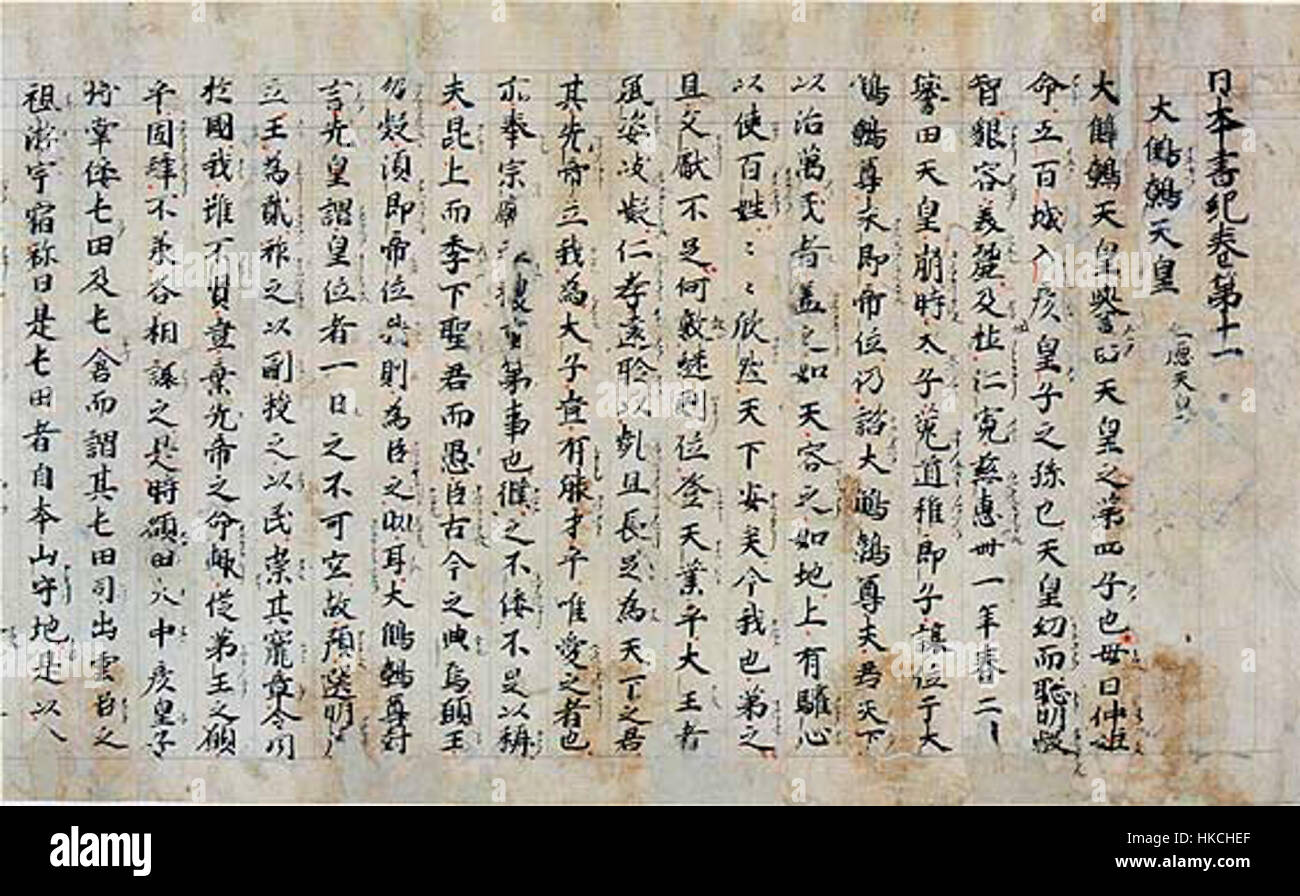 日本書紀巻第十一
大鷦鷯天皇
大鷦鷯天皇譽田天皇之第四子也母曰仲姫
命五百城入彦皇子之孫也天皇幼而聡明叡
智貌容美麗及壮仁寛慈恵卌一年春二〻
譽田天皇崩時太子菟道稚即子譲位于大
鷦鷯尊未即帝位仍諮大鷦鷯尊夫君天下
以治萬民者盖之如天容之如地上有驩心
以使百姓〻〻欣然天下安矣今我也弟之
且文献不足何敢継嗣位登天業乎大王者
風姿岐嶷仁孝遠聆以歯且長足為天下之君
其先帝立我為太子豈有能才乎唯愛之者也
亦奉宗廟 事也僕之不佞不足以稱
夫昆上而季下聖君而愚臣古今之典焉願王
勿疑須即帝位我則為臣之助耳大鷦鷯尊対
言先皇謂皇位者一日之不可空故預選明
立王為貳祚之以副授之以民崇其寵章令聞
於國我雖不賢豈棄先帝之命輙従弟王之願
乎固辞不承各相譲之是時額田大中彦皇子
将掌倭屯田及屯倉而謂其屯田司出雲臣之
祖淤宇宿祢曰是屯田者自本山守地是以八
alamy stock photo
HKCHEF
www.alamy.com